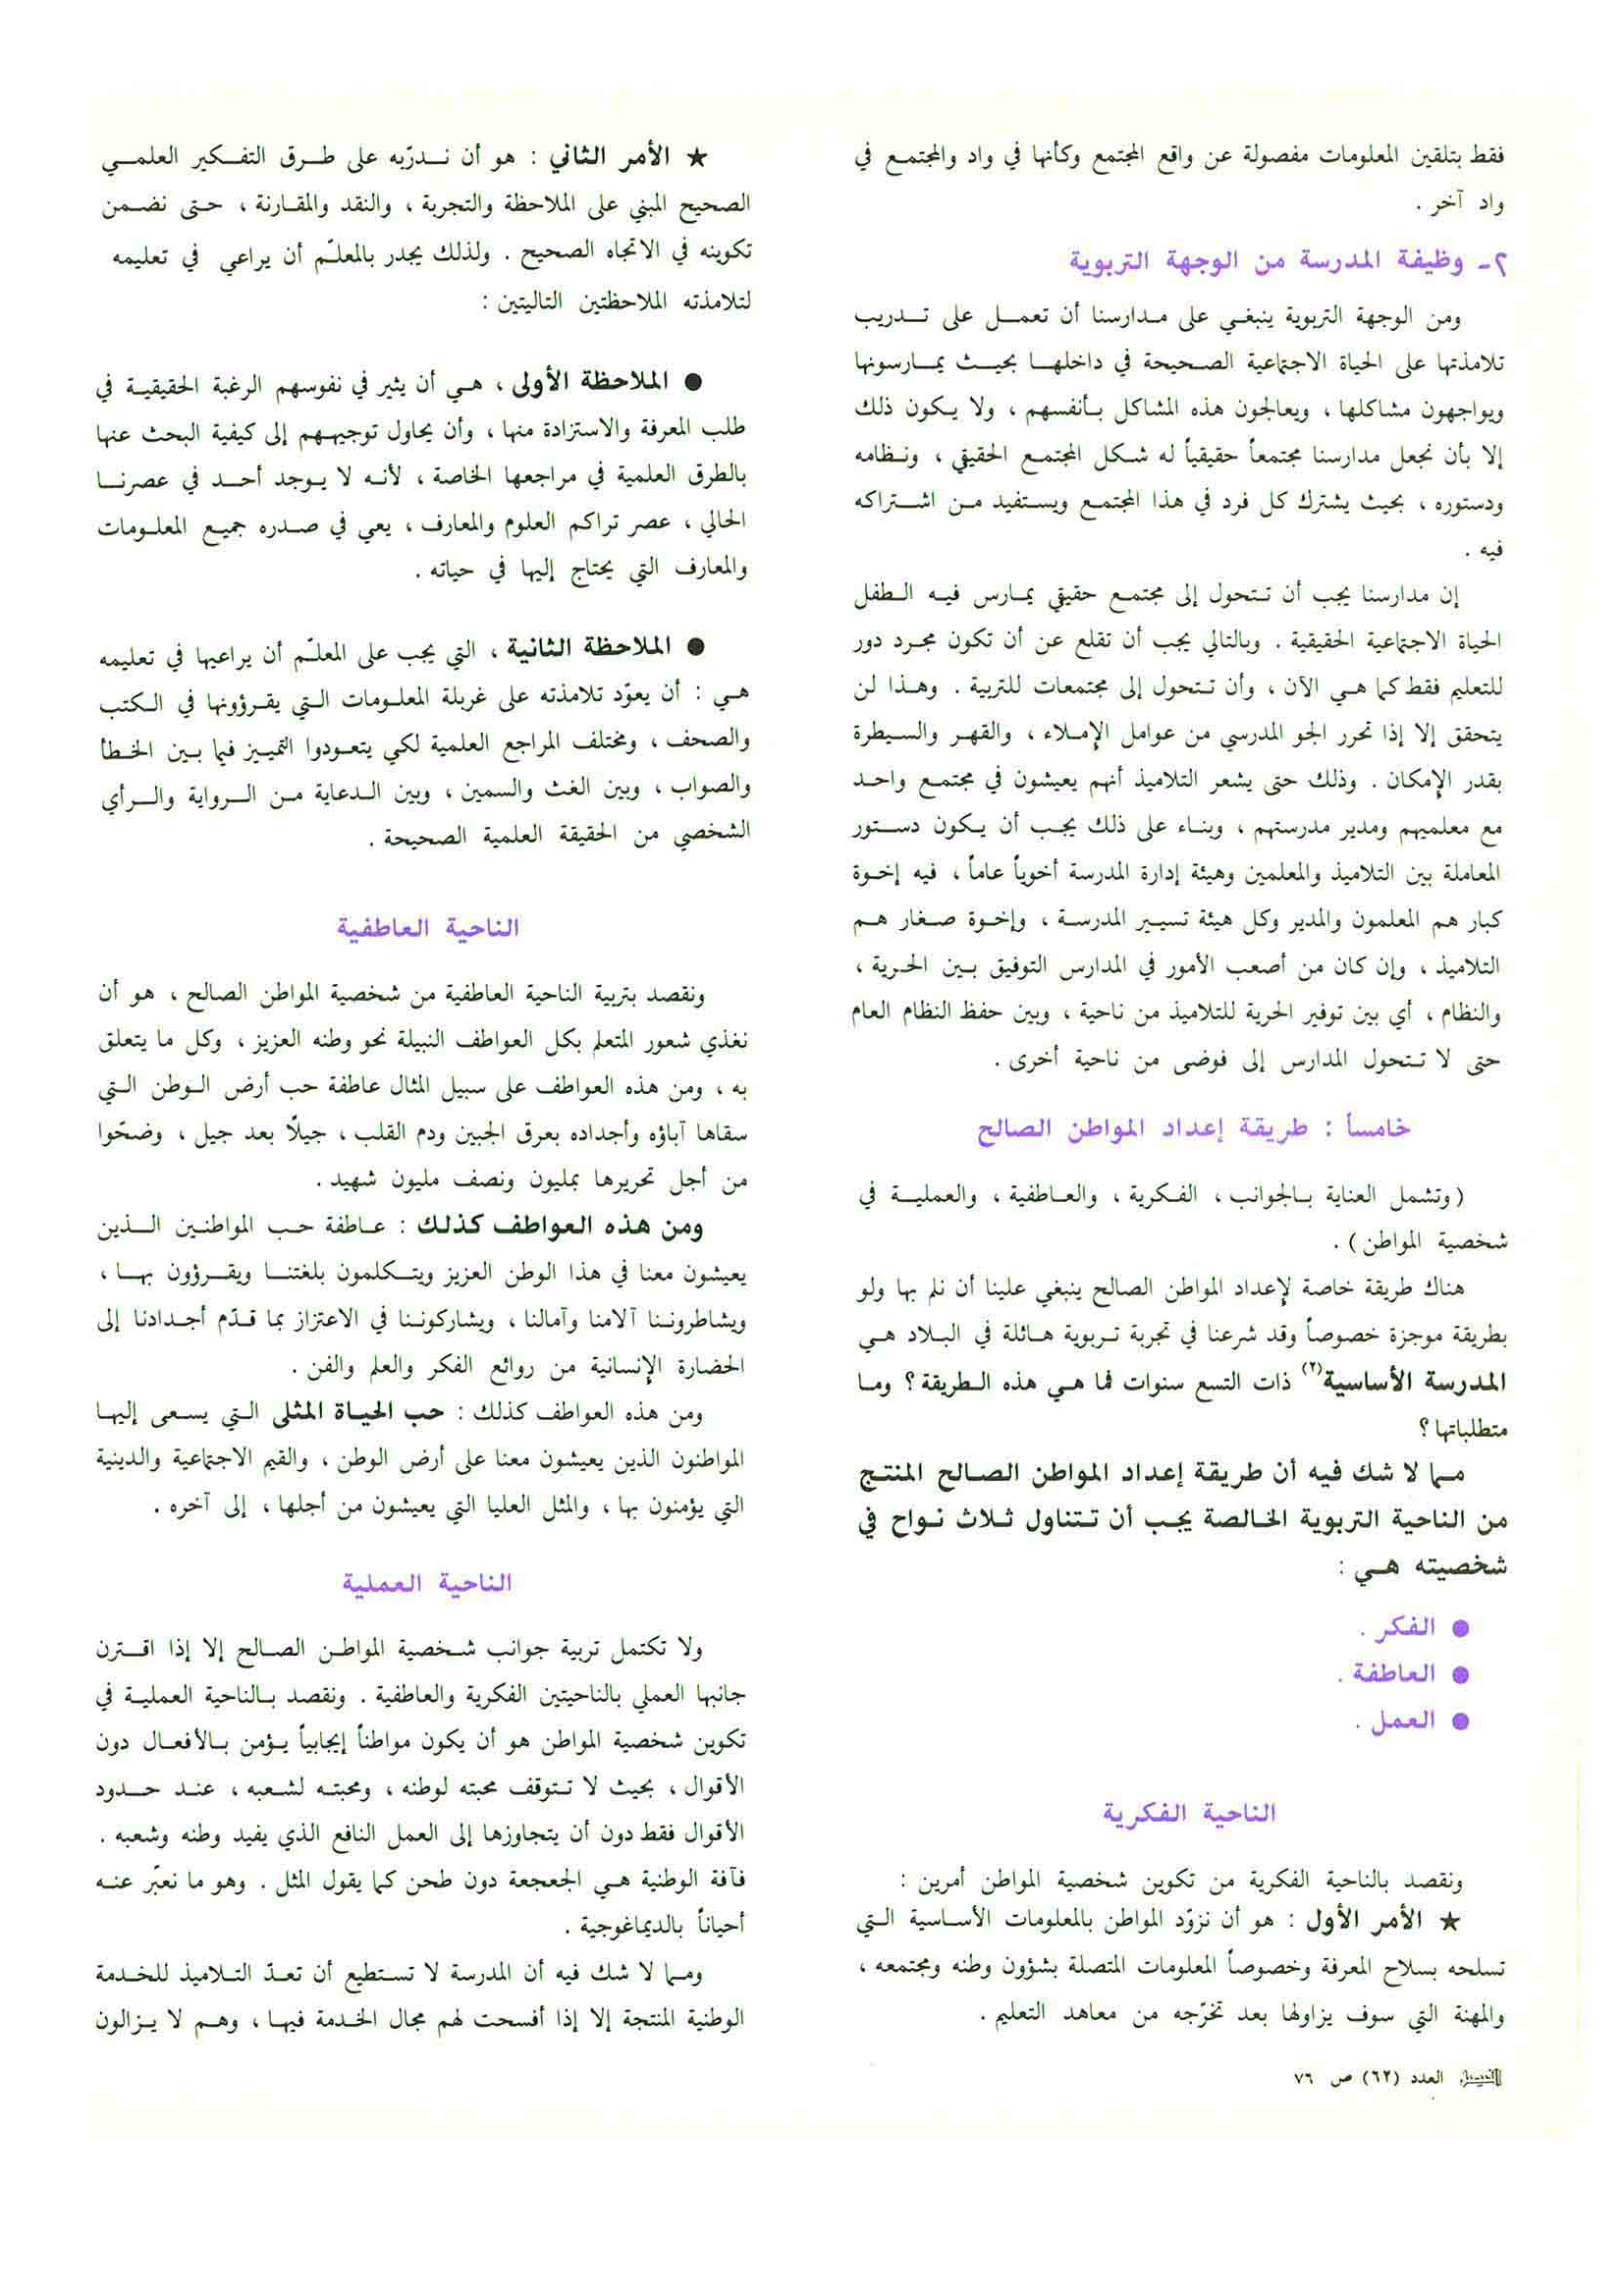 فقط بتلقين المعلومات مفصولة عن واقع المجتمع وكأنها في واد والمجتمع في
واد آخر .
٢ـ وظيفة المدرسة من الوجهة التربوية
ومن الوجهة التربوية ينبغي على مدارسنا أن تعمل على تدريب
تلامذتها على الحياة الاجتماعية الصحيحة في داخلها بحيث يمارسونها
ويواجهون مشاكلها ، ويعالجون هذه المشاكل بأنفسهم ، ولا يكون ذلك
إلا بأن نجعل مدارسنا مجتمعاً حقيقياً له شكل المجتمع الحقيقي ، ونظامه
ودستوره ، بحيث يشترك كل فرد في هذا المجتمع ويستفيد من اشتراكه
فيه .
إن مدارسنا يجب أن تتحول إلى مجتمع حقيقي يمارس فيه الطفل
الحياة الاجتماعية الحقيقية . وبالتالي يجب أن تقلع عن أن تكون مجرد دور
للتعليم فقط كما هي الآن ، وأن تتحول إلى مجتمعات للتربية . وهذا لن
يتحقق إلا إذا تحرر الجو المدرسي من عوامل الإملاء ، والقهر والسيطرة
بقدر الإمكان . وذلك حتى يشعر التلاميذ أنهم يعيشون في مجتمع واحد
مع معلميهم ومدير مدرستهم ، وبناء على ذلك يجب أن يكون دستور
المعاملة بين التلاميذ والمعلمين وهيئة إدارة المدرسة أخوياً عاماً ، فيه إخوة
كبار هم المعلمون والمدير وكل هيئة تسيير المدرسة ، وإخوة صغار هم
التلاميذ ، وإن كان من أصعب الأمور في المدارس التوفيق بين الحرية ،
والنظام ، أي بين توفير الحرية للتلاميذ من ناحية ، وبين حفظ النظام العام
حتى لا تتحول المدارس إلى فوضى من ناحية أخرى .
خامساً : طريقة إعداد المواطن الصالح
( وتشمل العناية بالجوانب ، الفكرية ، والعاطفية ، والعملية في
شخصية المواطن ) .
هناك طريقة خاصة لإعداد المواطن الصالح ينبغي علينا أن نلم بها ولو
بطريقة موجزة خصوصاً وقد شرعنا في تجربة تربوية هائلة في البلاد هي
المدرسة الأساسية(٢) ذات التسع سنوات فما هي هذه الطريقة ؟ وما
متطلباتها ؟
مما لا شك فيه أن طريقة إعداد المواطن الصالح المنتج
من الناحية التربوية الخالصة يجب أن تتناول ثلاث نواح في
شخصيته هي :
● الفكر .
● العاطفة .
● العمل .
الناحية الفكرية
ونقصد بالناحية الفكرية من تكوين شخصية المواطن أمرين :
★ الأمر الأول : هو أن نزوّد المواطن بالمعلومات الأساسية التي
تسلحه بسلاح المعرفة وخصوصاً المعلومات المتصلة بشؤون وطنه ومجتمعه ،
والمهنة التي سوف يزاولها بعد تخرّجه من معاهد التعليم .
★ الأمر الثاني : هو أن ندرّبه على طرق التفكير العلمي
الصحيح المبني على الملاحظة والتجربة ، والنقد والمقارنة ، حتى نضمن
تكوينه في الاتجاه الصحيح . ولذلك يجدر بالمعلّم أن يراعي في تعليمه
لتلامذته الملاحظتين التاليتين :
● الملاحظة الأولى ، هي أن يثير في نفوسهم الرغبة الحقيقية في
طلب المعرفة والاستزادة منها ، وأن يحاول توجيههم إلى كيفية البحث عنها
بالطرق العلمية في مراجعها الخاصة ، لأنه لا يوجد أحد في عصرنا
الحالي ، عصر تراكم العلوم والمعارف ، يعي في صدره جميع المعلومات
والمعارف التي يحتاج إليها في حياته .
● الملاحظة الثانية ، التي يجب على المعلّم أن يراعيها في تعليمه
هي : أن يعوّد تلامذته على غربلة المعلومات التي يقرؤونها في الكتب
والصحف ، ومختلف المراجع العلمية لكي يتعودوا التمييز فيما بين الخطأ
والصواب ، وبين الغث والسمين ، وبين الدعاية من الرواية والرأي
الشخصي من الحقيقة العلمية الصحيحة .
الناحية العاطفية
ونقصد بتربية الناحية العاطفية من شخصية المواطن الصالح ، هو أن
نغذي شعور المتعلم بكل العواطف النبيلة نحو وطنه العزيز ، وكل ما يتعلق
به ، ومن هذه العواطف على سبيل المثال عاطفة حب أرض الوطن التي
سقاها آباؤه وأجداده بعرق الجبين ودم القلب ، جيلاً بعد جيل ، وضحّوا
من أجل تحريرها بمليون ونصف مليون شهيد .
ومن هذه العواطف كذلك : عاطفة حب المواطنين الذين
يعيشون معنا في هذا الوطن العزيز ويتكلمون بلغتنا ويقرؤون بها ،
ويشاطروننا آلامنا وآمالنا ، ويشاركوننا في الاعتزاز بما قدّم أجدادنا إلى
الحضارة الإنسانية من روائع الفكر والعلم والفن .
ومن هذه العواطف كذلك : حب الحياة المثلى التي يسعى إليها
المواطنون الذين يعيشون معنا على أرض الوطن ، والقيم الاجتماعية والدينية
التي يؤمنون بها ، والمثل العليا التي يعيشون من أجلها ، إلى آخره .
الناحية العملية
ولا تكتمل تربية جوانب شخصية المواطن الصالح إلا إذا اقترن
جانبها العملي بالناحيتين الفكرية والعاطفية . ونقصد بالناحية العملية في
تكوين شخصية المواطن هو أن يكون مواطناً إيجابياً يؤمن بالأفعال دون
الأقوال ، بحيث لا تتوقف محبته لوطنه ، ومحبته لشعبه ، عند حدود
الأقوال فقط دون أن يتجاوزها إلى العمل النافع الذي يفيد وطنه وشعبه .
فآفة الوطنية هي الجعجعة دون طحن كما يقول المثل . وهو ما نعبّر عنه
أحياناً بالديماغوجية .
ومما لا شك فيه أن المدرسة لا تستطيع أن تعدّ التلاميذ للخدمة
الوطنية المنتجة إلا إذا أفسحت لهم مجال الخدمة فيها ، وهم لا يزالون
الفيصل العدد (٦٢) ص ٧٦